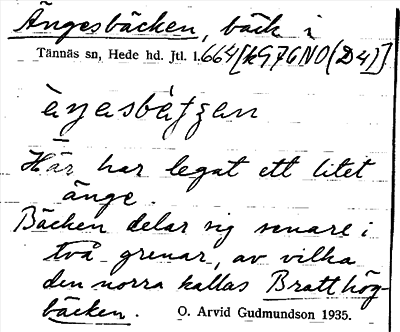 Ängesbäcken, bäck i
Tännäs sn, Hede hd. Jtl. l. 664 [kG76NO(D4)]
Här har legat ett litet
änge.
Bäcken delar sig senare i
två grenar, av vilka
den norra kallas Bratthög-
bäcken. O. Arvid Gudmundson 1935.